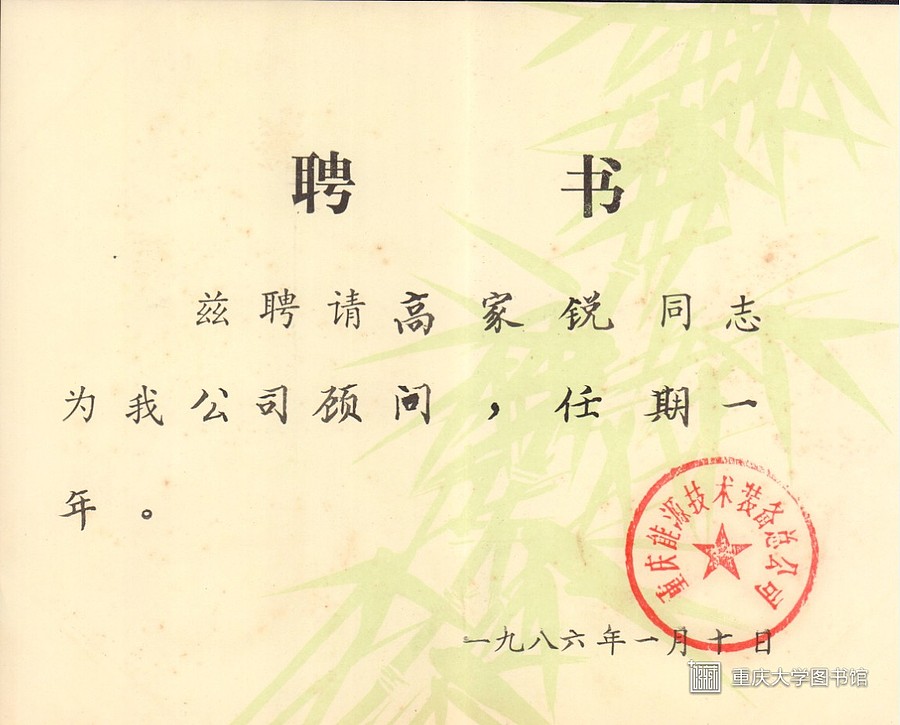 聘书
兹聘请高家锐同志
为我公司顾问，任期一
年。
重庆能源技术装备总公司
一九八六年一月十日
重庆大学图书馆